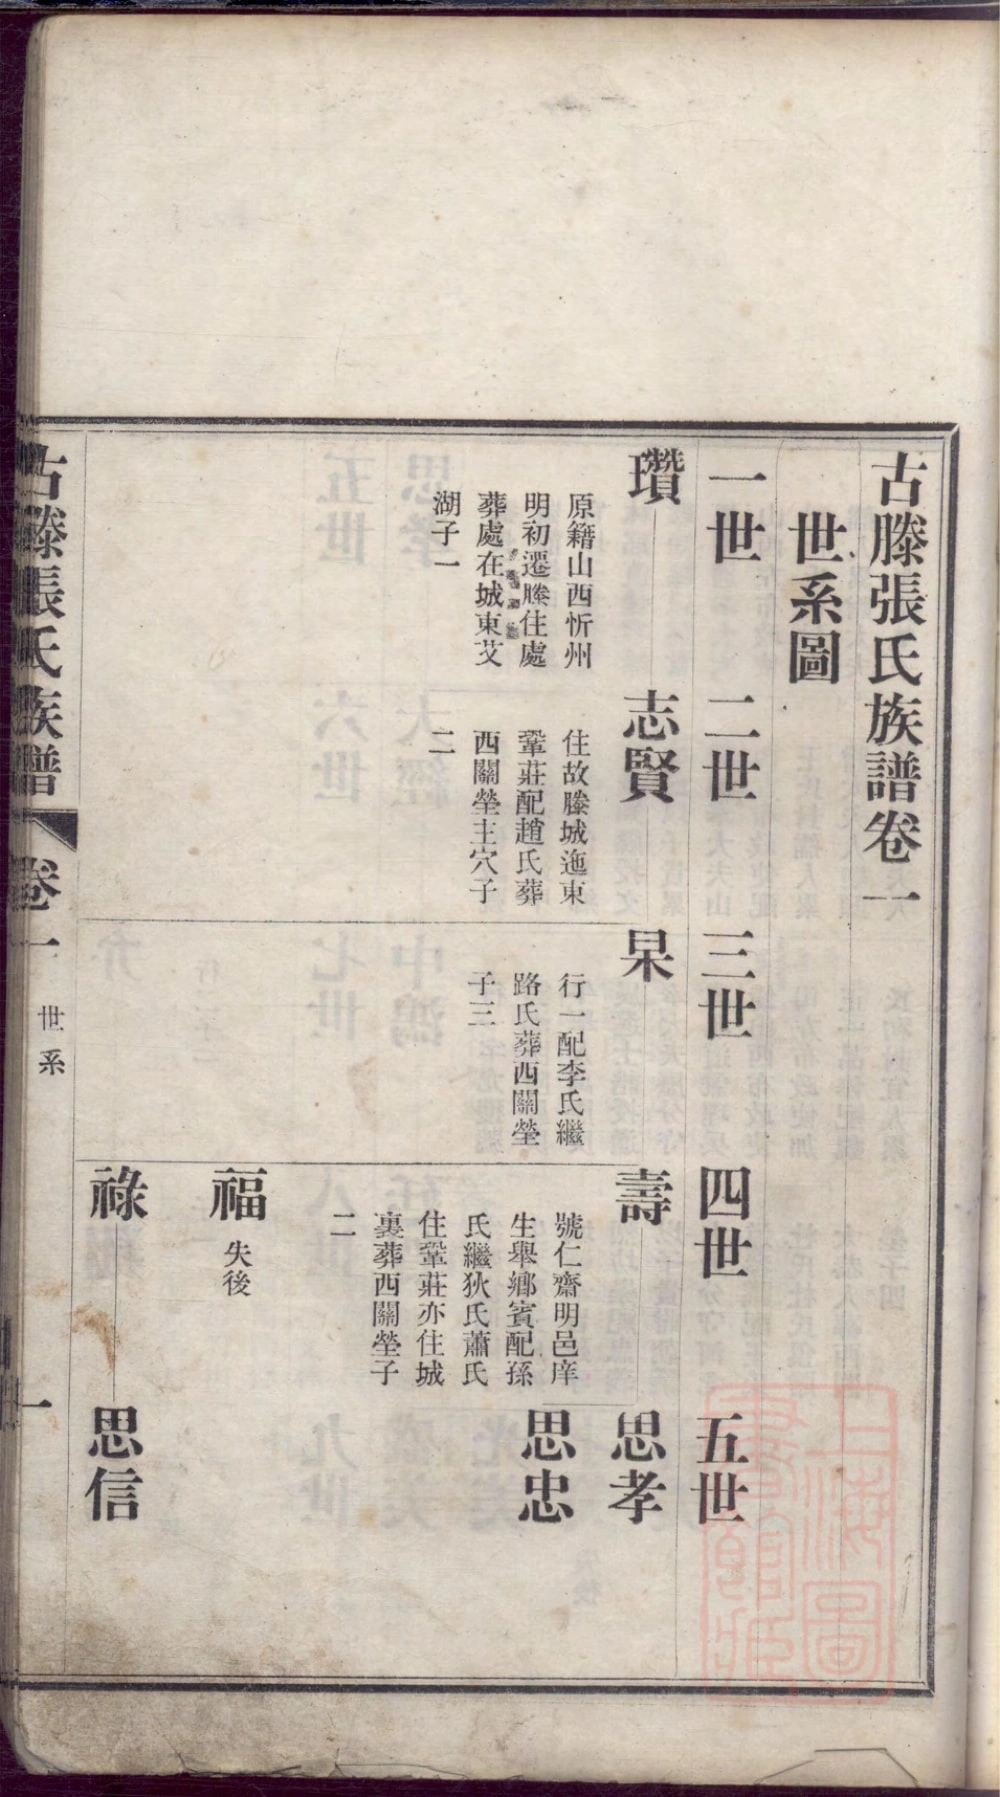 古滕張氏族譜卷一
世系圖
一世
二世
三世
四世
五世
瓚
原籍山西忻州
明初遷滕住處
葬處在城東艾
湖子一
志賢
住故滕城迤東
鞏莊配趙氏葬
西關塋主穴子
二
杲
行一配李氏繼
路氏葬西關塋
子三
壽
號仁齋明邑庠
生舉鄉賓配孫
氏繼狄氏蕭氏
住鞏莊亦住城
裏葬西關塋子
二
思孝
思忠
福
失後
祿
思信
古滕張氏族譜
卷一
世系
一
上海圖書館藏